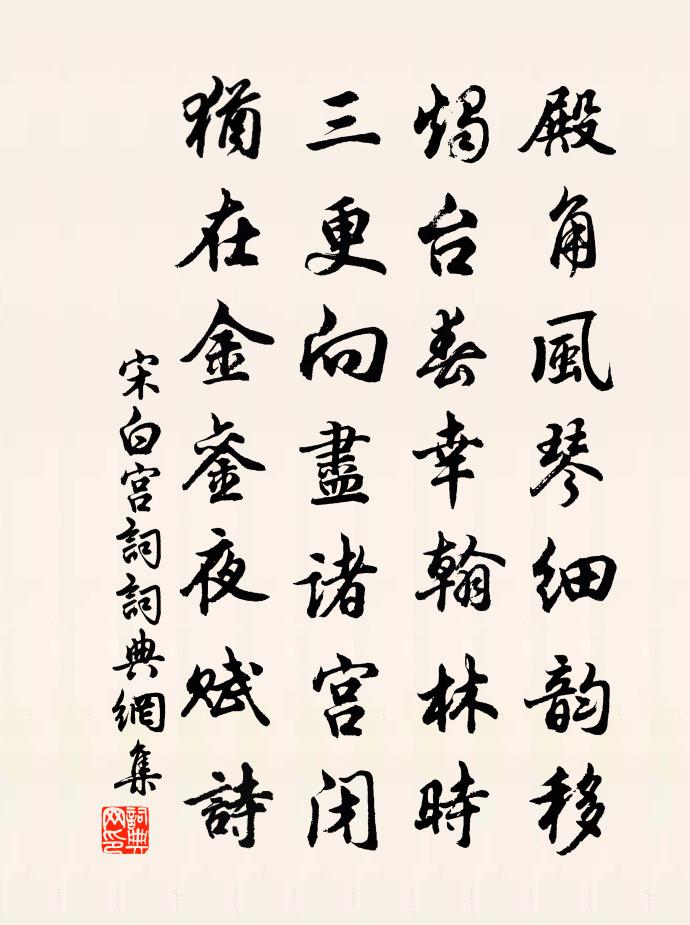 殿角風琴細韵移
燭台春幸翰林時
三更向盡諸宮闭
猶在金銮夜賦詩
宋白宫詞詞典網集
詞典网印